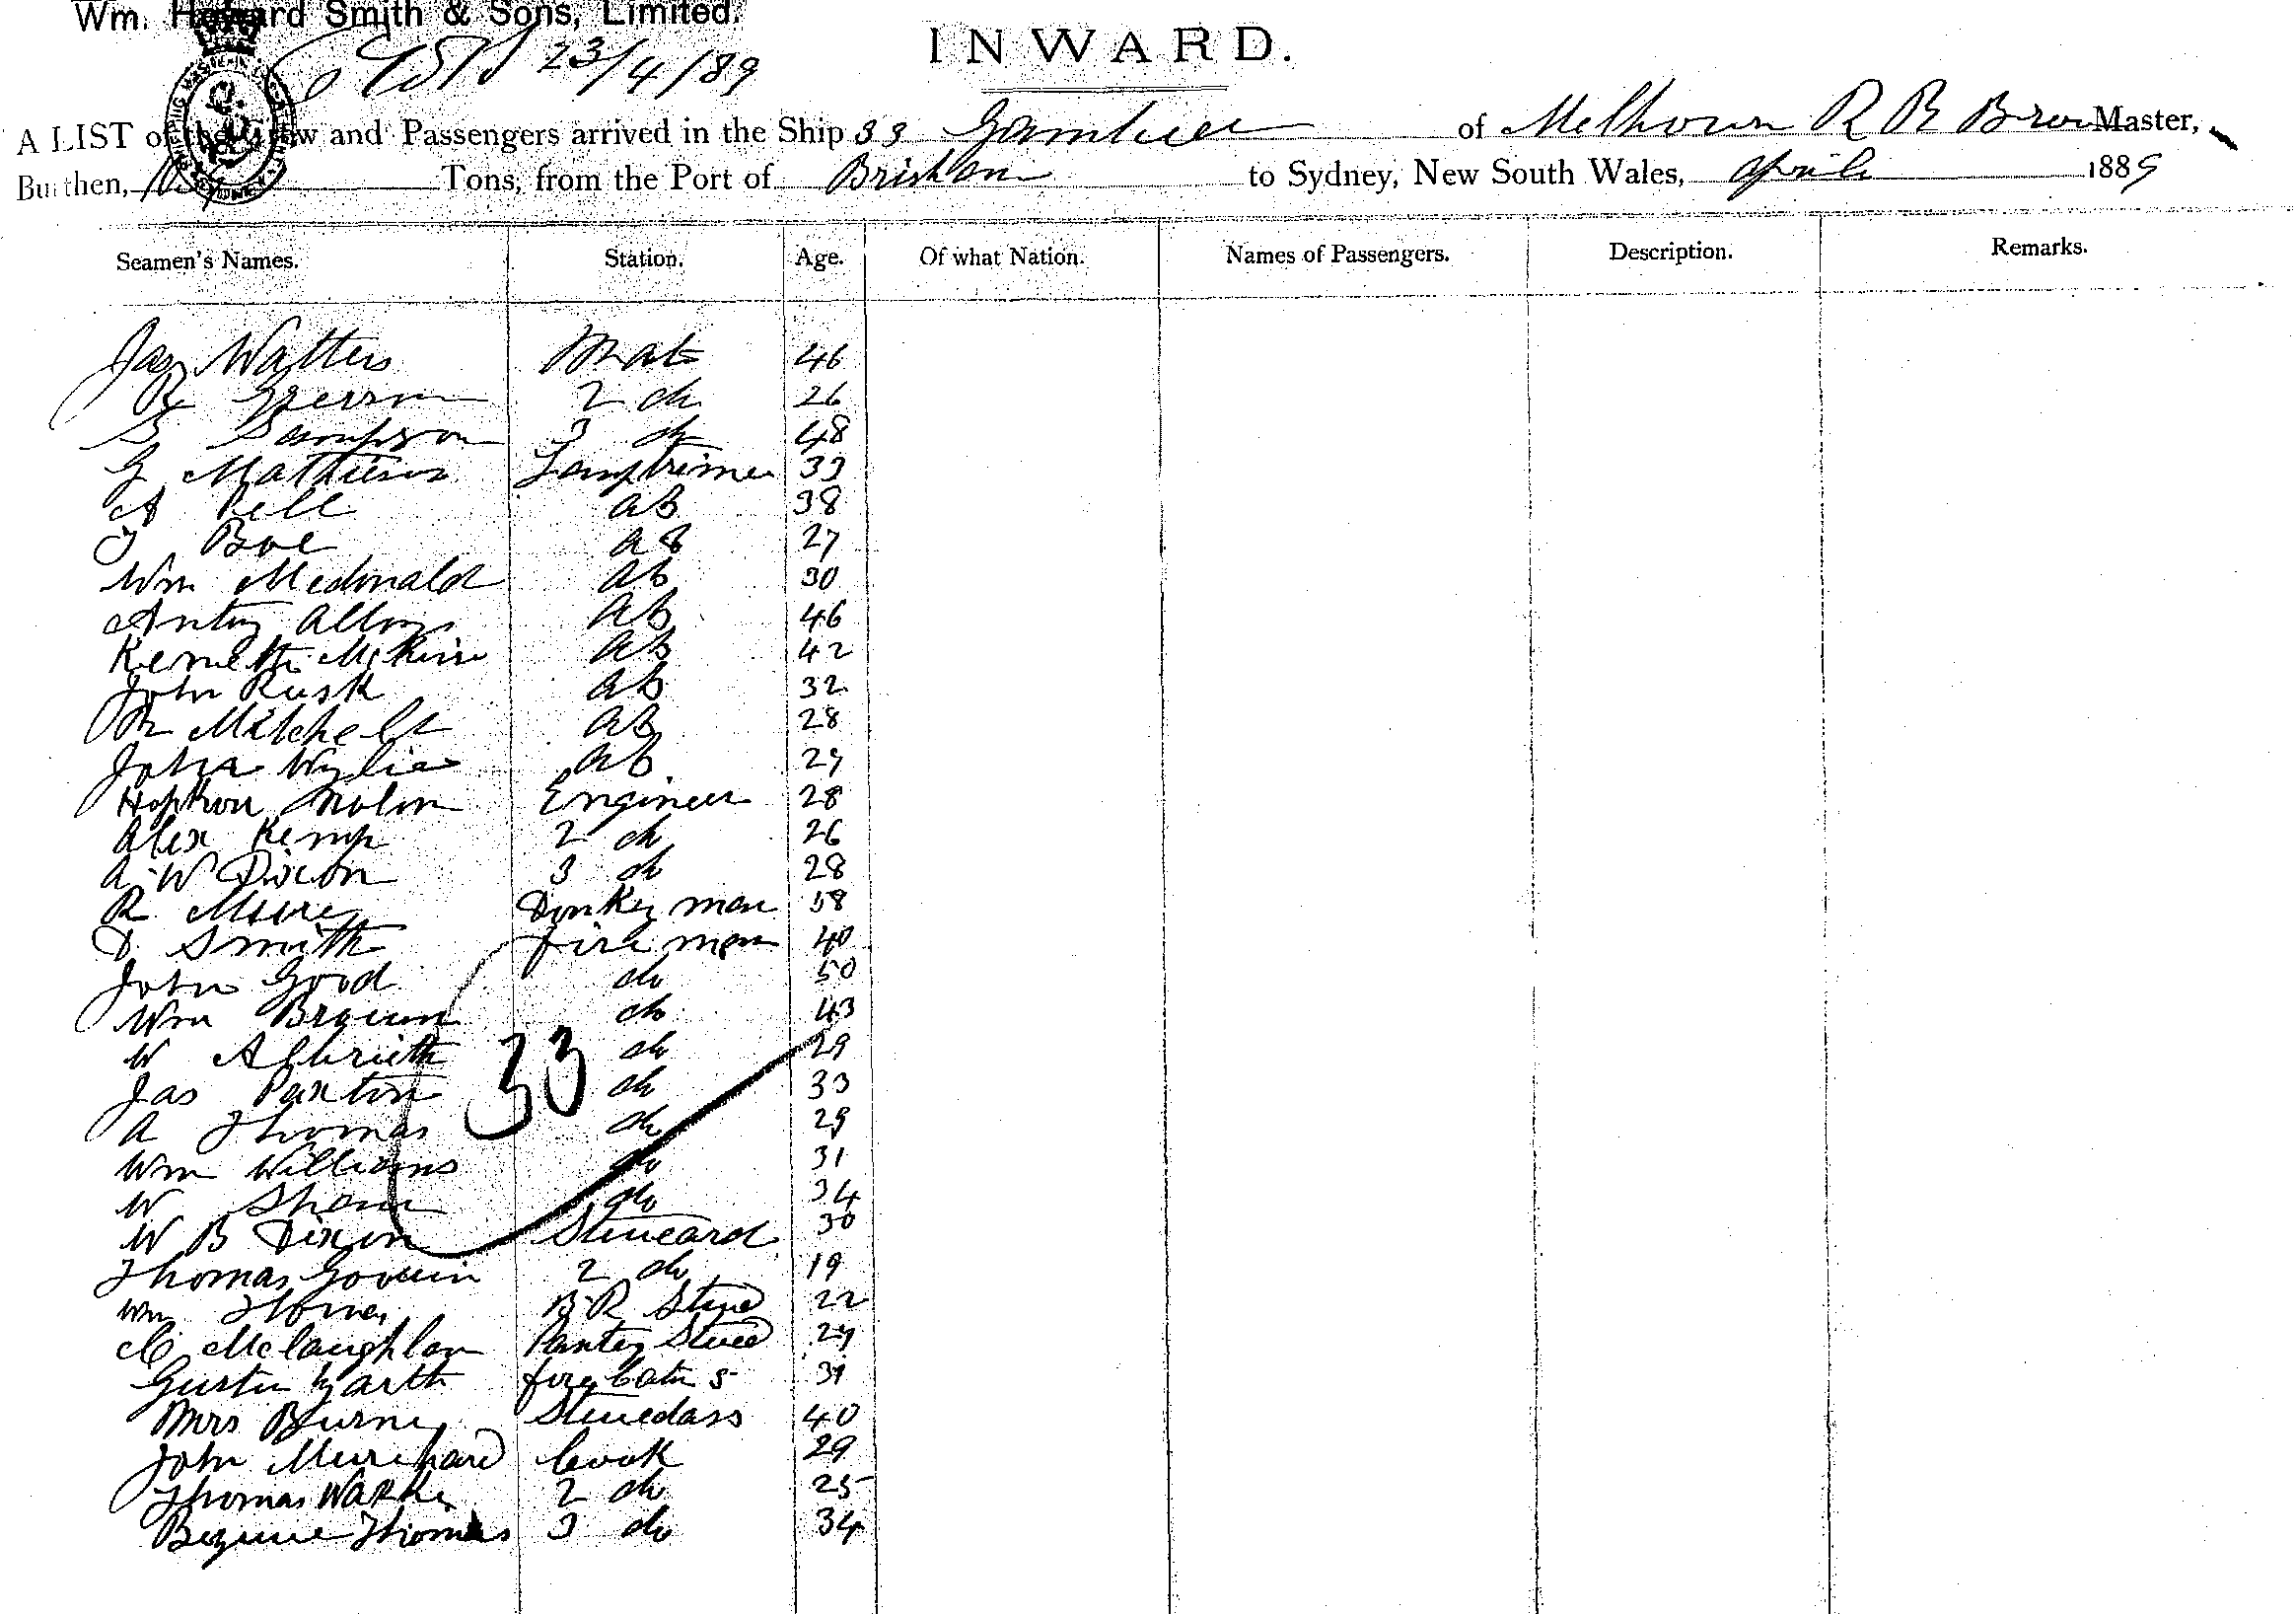 Wm. Howard Smith & Sons, Limited.
23/4/89
INWARD.
A LIST of the Crew and Passengers arrived in the Ship SS Gambier of Melbourn R B Brown Master,
Burthen, Tons, from the Port of Brisban to Sydney, New South Wales, April 1889
Seamen's Names. Station. Age. Of what Nation. Names of Passengers. Description. Remarks.
Jas Watters Mate 46
R 2 do 26
S Sampson 3 do 48
G Mathews Lamptrimer 33
A Pell AB 38
J Boe AB 27
Wm Mcdonald AB 30
Antoy AB 46
Kenneth AB 42
John Rusk AB 32
Mitchell AB 28
John Wylie AB 27
Engineer 28
Alex Kemp 2 do 26
A W Dixon 3 do 28
R Donkey man 58
D Smith fire man 40
John Good do 50
Wm Brown do 43
W do 29
Jas Paxton do 33
A Thomas do 29
Wm Williams do 31
W do 34
33
W B Dixon Steward 30
Thomas 2 do 19
Wm B R Stewd 22
Mclaughlan Pantry Stewd 27
Garth 31
Mrs Burns Stewedass 40
John Cook 29
Thomas 2 do 25
Thomas 3 do 34